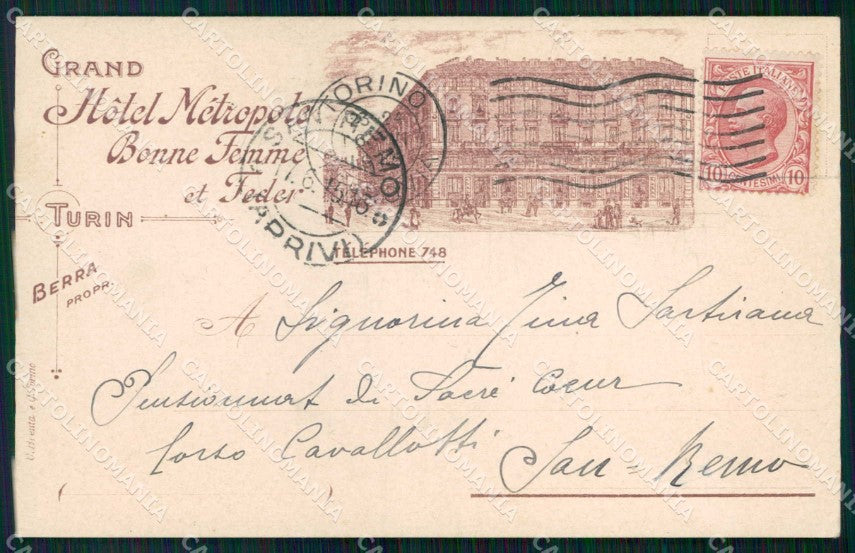 GRAND
Hôtel Métropole
Bonne Femme
et Feder
TURIN
BERRA
PROPR.
TELEPHONE 748
TORINO
POSTE ITALIANE
10 CENTESIMI 10
A Signorina Gina Sartirana
Pensionnat di Sacré Coeur
Corso Cavallotti
San=Remo
CARTOLINOMANIA